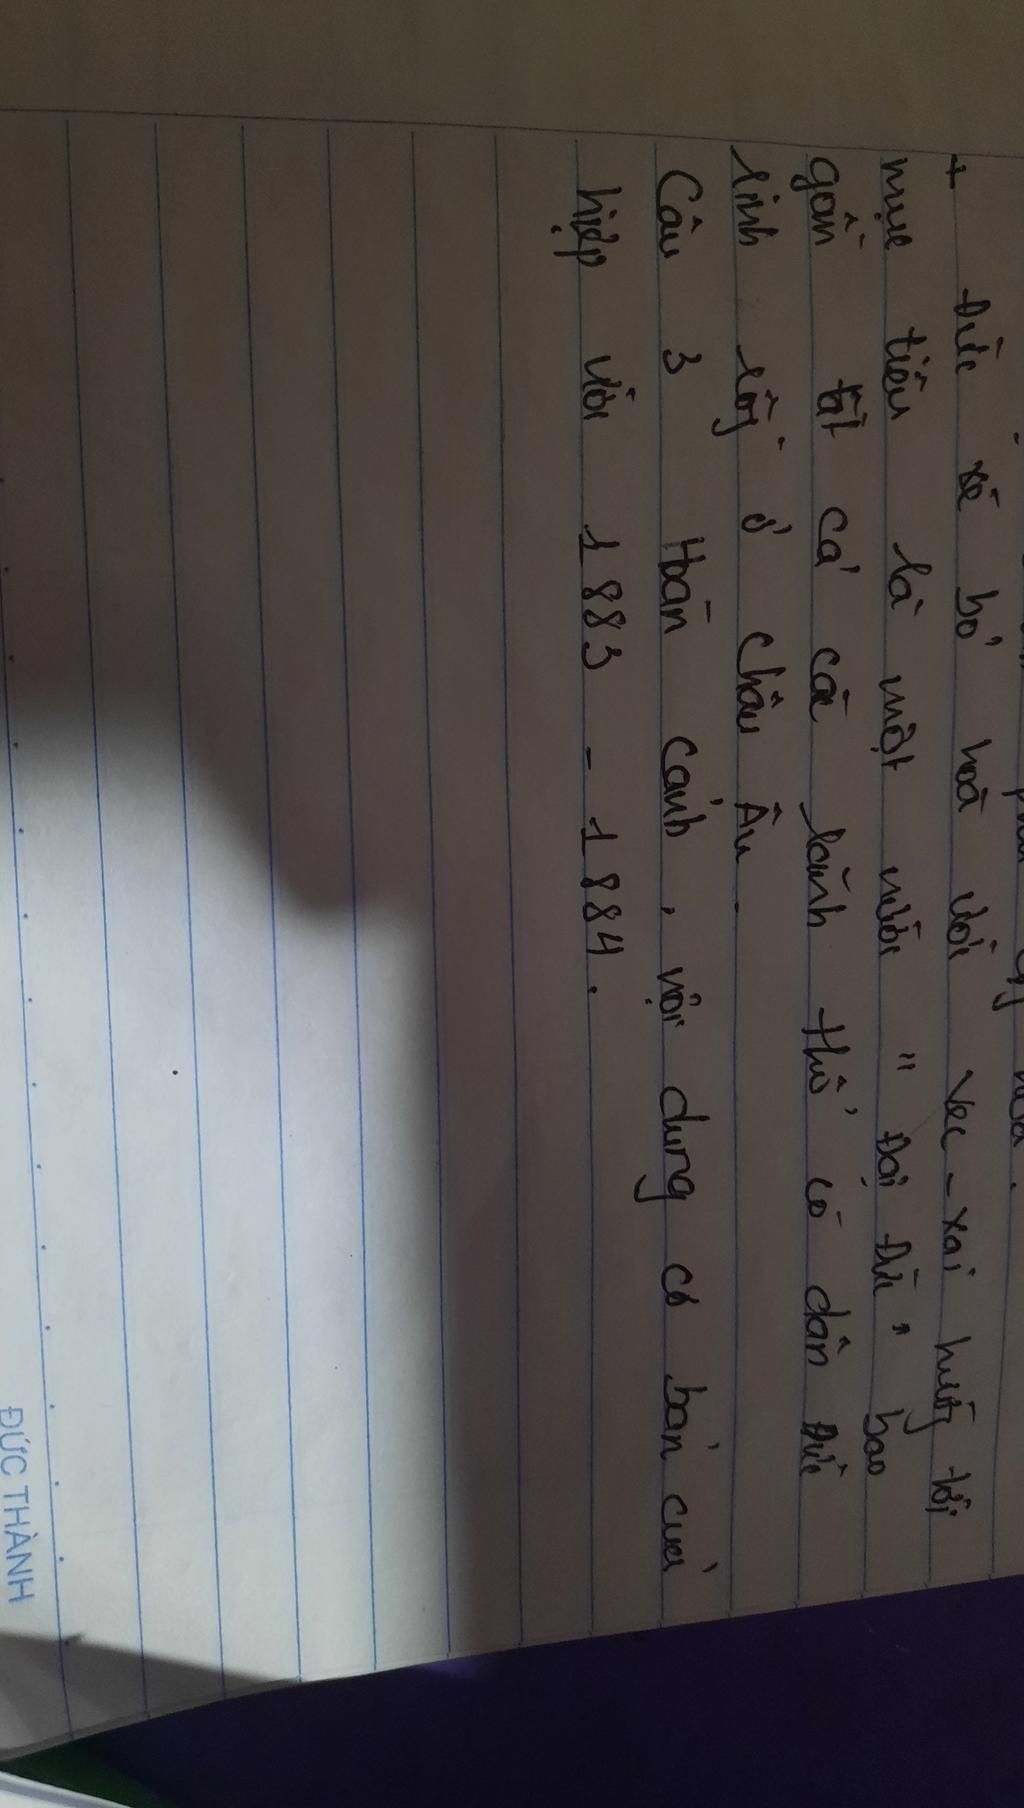 + Đức xé bỏ hoà với Vec-xai hướng tới
mục tiêu là một nước "Đại Đức" bao
gồm tất cả các lãnh thổ có dân Đức
sinh sống ở Châu Âu.
Câu 3 Hoàn cảnh, nội dung cơ bản của
hiệp ước 1883 - 1884.
ĐỨC THÀNH